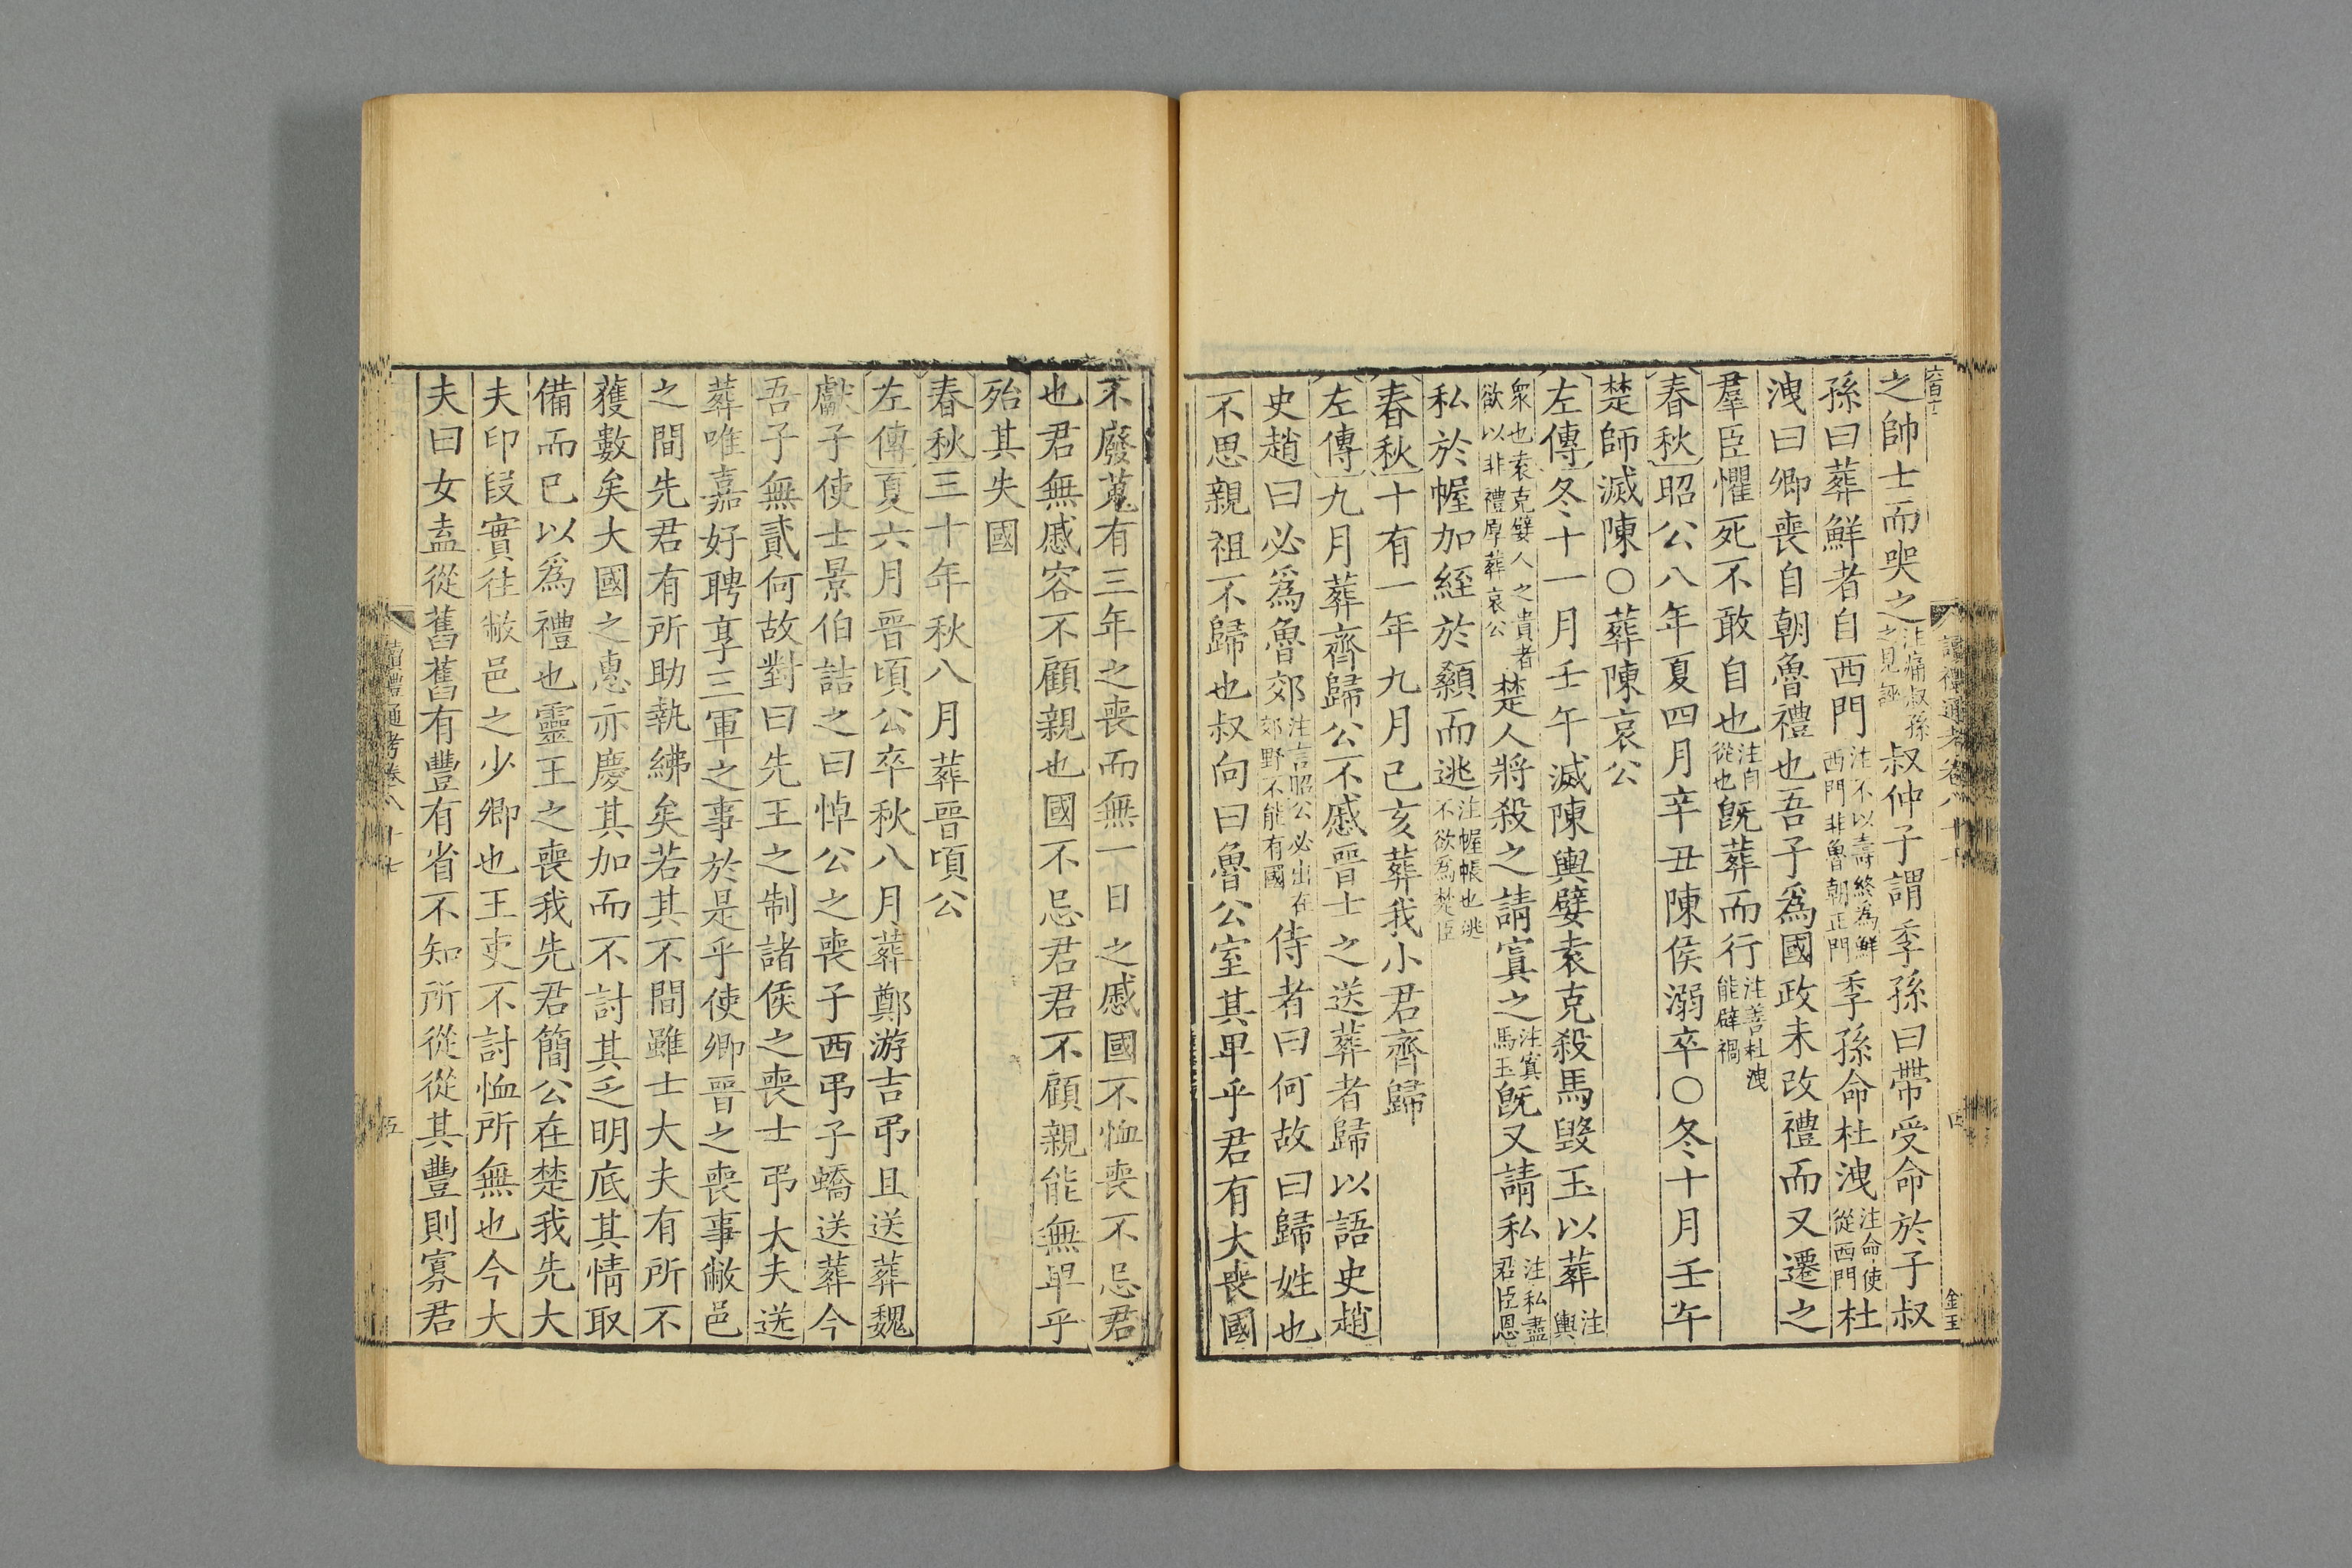 之帥士而哭之注痛叔孫之見誣叔仲子謂季孫曰帶受命於子叔
孫曰葬鮮者自西門注不以壽終為鮮西門非魯朝正門季孫命杜洩注命使從西門杜
洩曰卿喪自朝魯禮也吾子爲國政未改禮而又遷之
羣臣懼死不敢自也注自從也旣葬而行注善杜洩能辟禍
春秋昭公八年夏四月辛丑陳侯溺卒○冬十月壬午
楚師滅陳○葬陳哀公
左傳冬十一月壬午滅陳輿嬖袁克殺馬毀玉以葬注輿
衆也袁克嬖人之貴者欲以非禮厚葬哀公楚人將殺之請寘之注寘馬玉旣又請私注私盡君臣恩
私於幄加絰於顙而逃注幄帳也逃不欲為楚臣
春秋十有一年九月己亥葬我小君齊歸
左傳九月葬齊歸公不慼晉士之送葬者歸以語史趙
史趙曰必爲魯郊注言昭公必出在郊野不能有國侍者曰何故曰歸姓也
不思親祖不歸也叔向曰魯公室其卑乎君有大喪國
不廢蒐有三年之喪而無一日之慼國不恤喪不忌君
也君無慼容不顧親也國不忌君君不顧親能無卑乎
殆其失國
春秋三十年秋八月葬晉頃公
左傳夏六月晉頃公卒秋八月葬鄭游吉弔且送葬魏
獻子使士景伯詰之曰悼公之喪子西弔子蟜送葬今
吾子無貳何故對曰先王之制諸侯之喪士弔大夫送
葬唯嘉好聘享三軍之事於是乎使卿晉之喪事敝邑
之間先君有所助執紼矣若其不間雖士大夫有所不
獲數矣大國之惠亦慶其加而不討其乏明底其情取
備而已以爲禮也靈王之喪我先君簡公在楚我先大
夫印段實往敝邑之少卿也王吏不討恤所無也今大
夫曰女盍從舊舊有豐有省不知所從從其豐則寡君
讀禮通考卷八十七
五